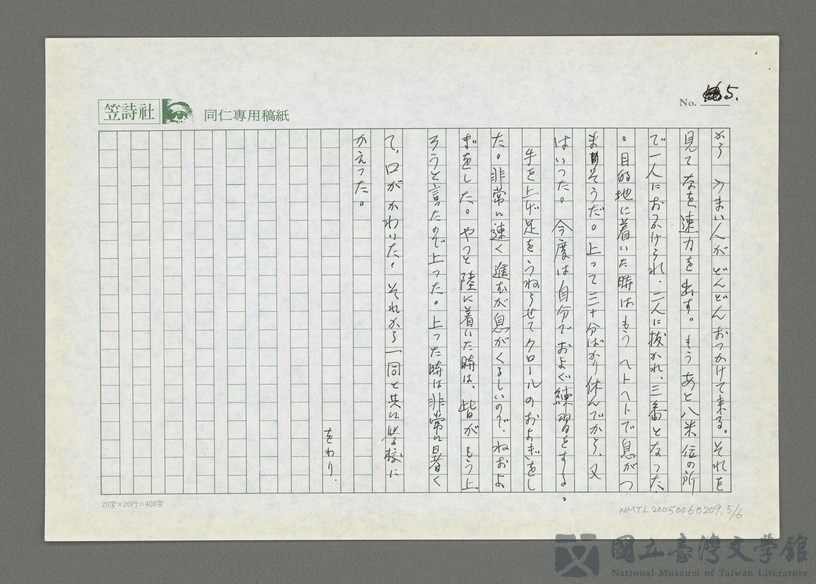 笠詩社
同仁專用稿紙
No. 5.
から うまい人がどんどんおつかけて来る。それを
見てなを速力を出す。もうあと八米位の所
で一人におつかけられ、二人に抜かれ、三番となつた
。目的地に着いた時はもう ヘトヘトで息がつ
まりそうだ。上つて三十分ばかり休んでから、又
はいつた。今度は自分でおよぐ練習をする。
手を上げ足をうねらせてクロールのおよぎをし
た。非常に速く進むが息がくるしいので、ねおよ
ぎをした。やつと陸に着いた時は、皆がもう上
ろうと言たので上つた。上つた時は非常に日暑く
て、口がかわいた。それから一同と共に学校に
かえつた。
をわり.
20字×20行=400字
NMTL20050060209, 5/6
國立臺灣文學館
National Museum of Taiwan Literature